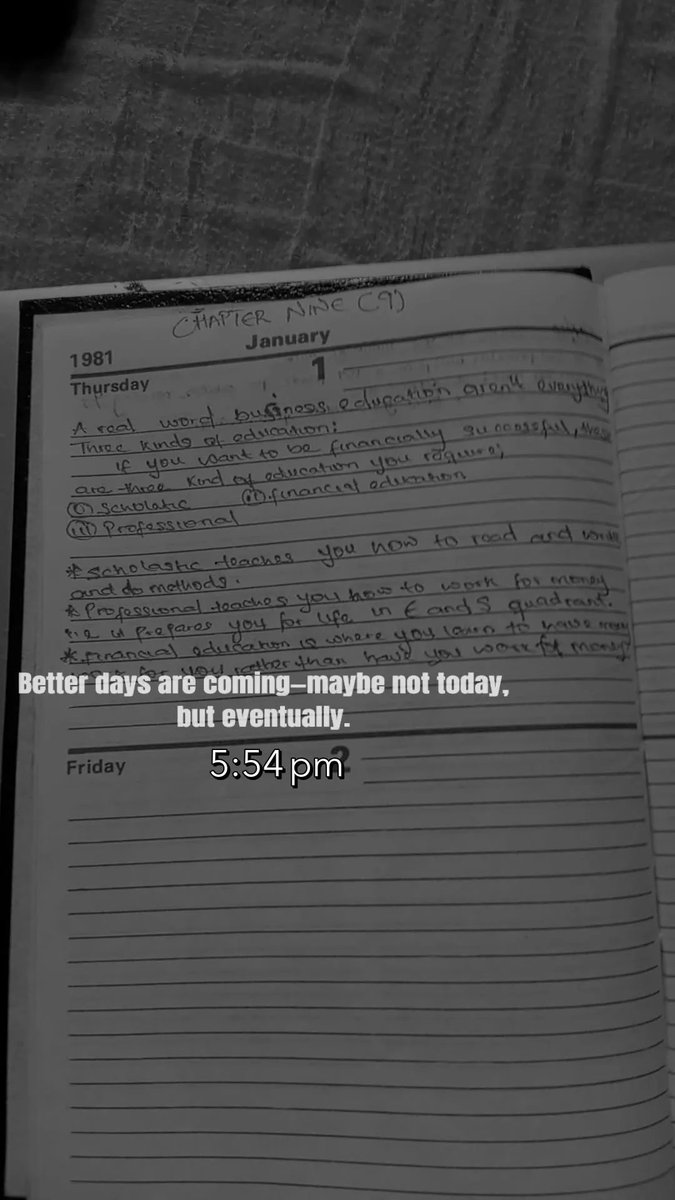 CHAPTER NINE (9)
1981
January
Thursday
1
A real word business education aren't everything
Three kinds of education:
If you want to be financially successful, these
are three kind of education you require;
(i) Scholatic (ii) financial education
(iii) Professional
* Scholastic teaches you how to read and write
and do methods.
* Professional teaches you how to work for money
i.e it prepares you for life in E and S quadrant.
* financial education is where you learn to have money
for you rather than have you work for money
Better days are coming—maybe not today,
but eventually.
Friday
2
5:54 pm